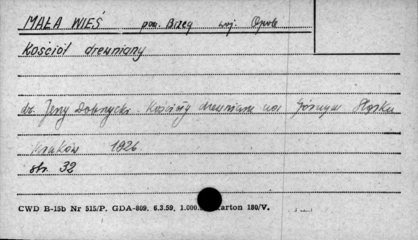 MAŁA WIEŚ pow. Brzeg woj. Opole
Kościół drewniany
dr. Jerzy Dobrzycki. Kościoły drewniane na Górnym Śląsku
Kraków 1926.
str. 32
CWD B-15b Nr 515/P. GDA-809. 6.3.59. 1.000. karton 180/V.